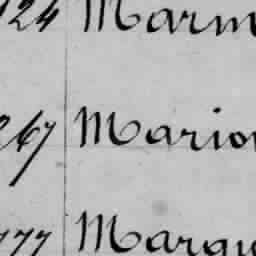 124 Marm
267 Marion
777 Margu